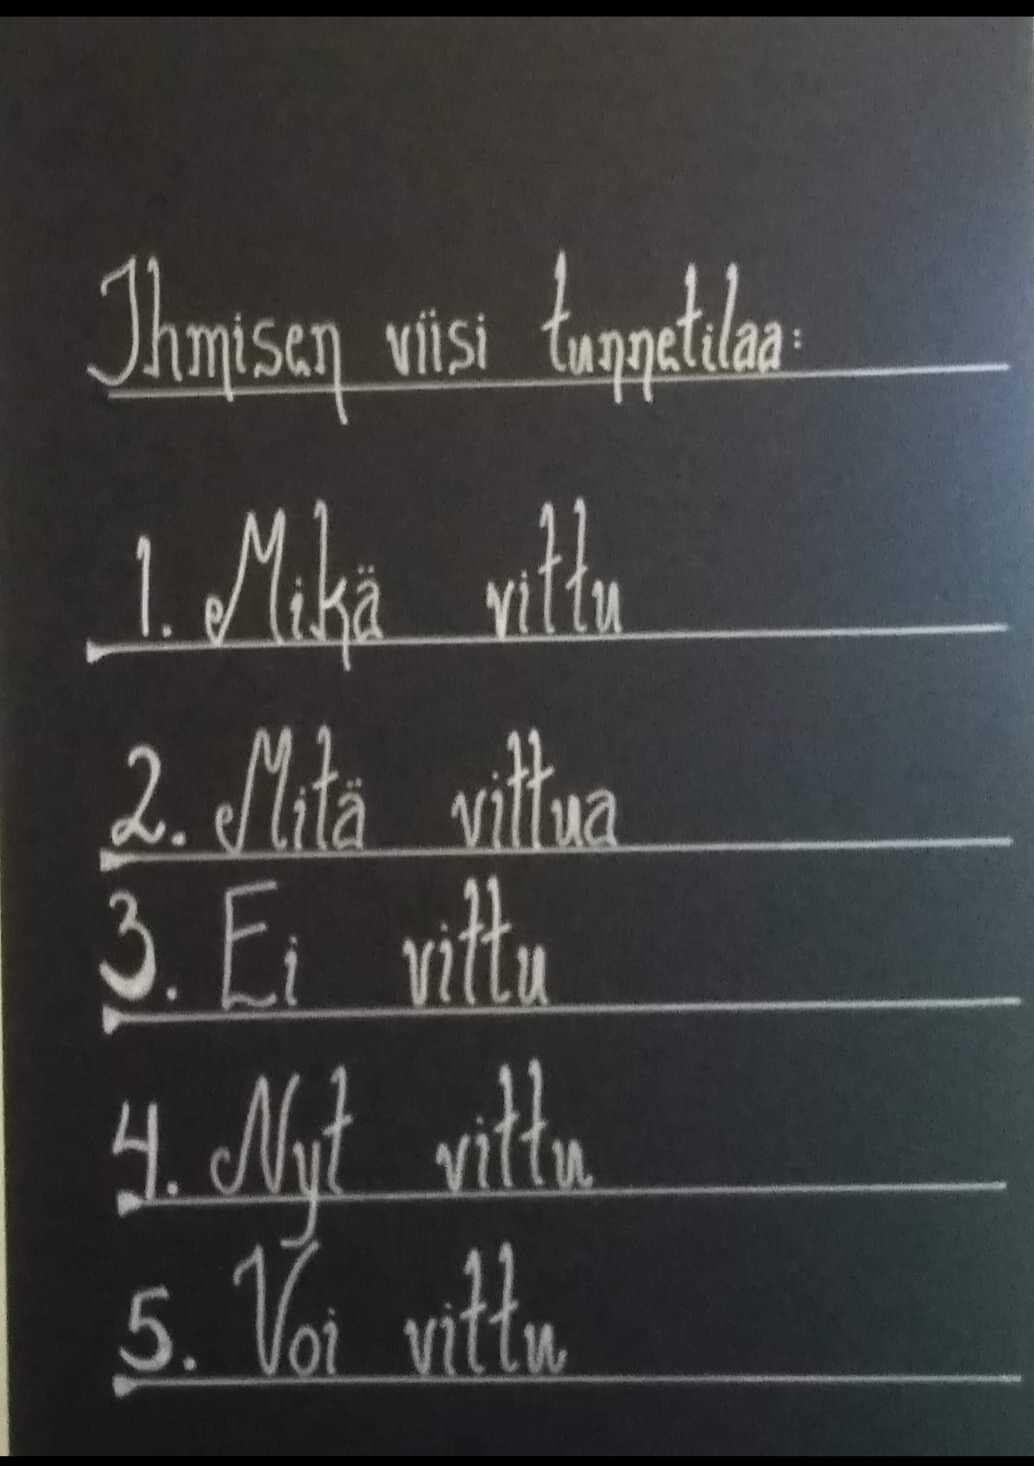 Ihmisen viisi tunnetilaa:
1. Mikä vittu
2. Mitä vittua
3. Ei vittu
4. Nyt vittu
5. Voi vittu